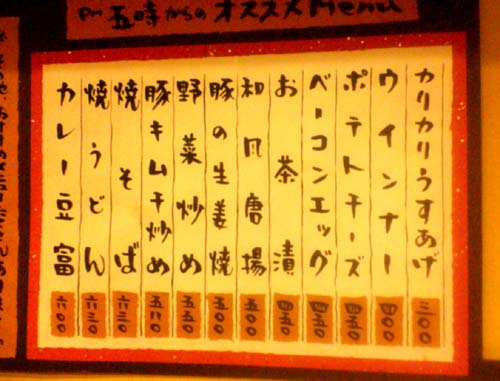 PM 五時からのオススメMenu
カリカリうすあげ 三〇〇
ウインナー 四〇〇
ポテトチーズ 四五〇
ベーコンエッグ 四五〇
お茶漬 四五〇
和風唐揚 五〇〇
豚の生姜焼 五〇〇
野菜炒め 五五〇
豚キムチ炒め 五八〇
焼そば 六三〇
焼うどん 六三〇
カレー豆富 六〇〇